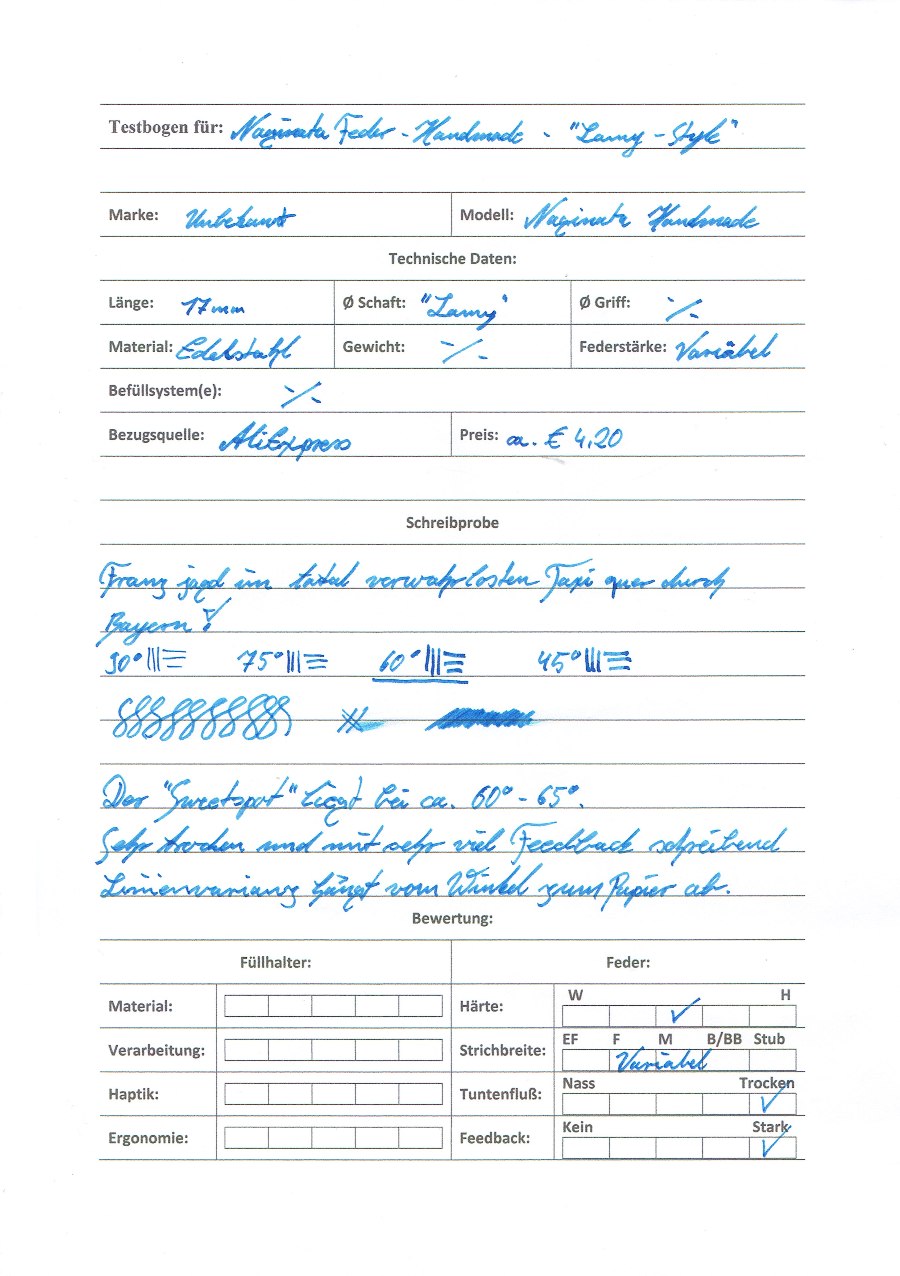 Testbogen für: Naginata Feder - Handmade - "Lamy - Style"
Marke: Unbekannt Modell: Naginata Handmade
Technische Daten:
Länge: 17mm Ø Schaft: "Lamy" Ø Griff: ·/.
Material: Edelstahl Gewicht: ·/. Federstärke: Variabel
Befüllsystem(e): ·/.
Bezugsquelle: AliExpress Preis: ca. € 4,20
Schreibprobe
Franz jagd im total verwahrlosten Taxi quer durch
Bayern!
90° 75° 60° 45°
Der "Sweetspot" liegt bei ca. 60° - 65°.
Sehr trocken und mit sehr viel Feedback schreibend
Linienvarianz hängt vom Winkel zum Papier ab.
Bewertung:
Füllhalter: Feder:
Material: Härte: W H ✓
Verarbeitung: Strichbreite: EF F M B/BB Stub Variabel
Haptik: Tuntenfluß: Nass Trocken ✓
Ergonomie: Feedback: Kein Stark ✓